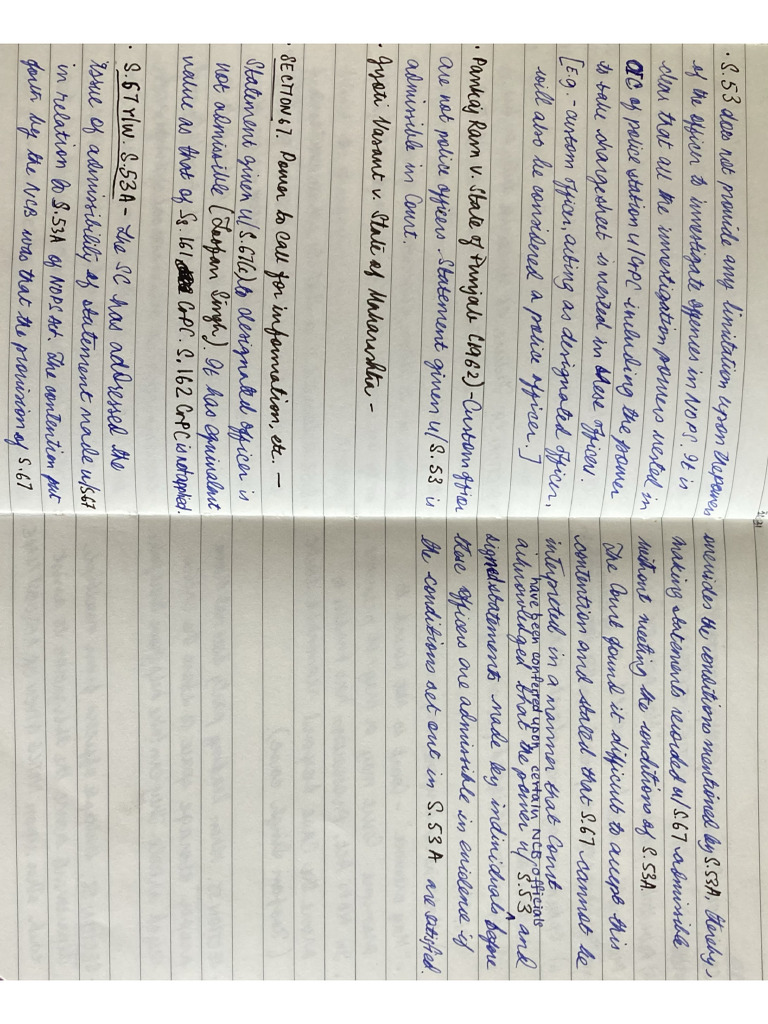 • S.53 does not provide any limitation upon the power
of the officer to investigate offences in NDPS. It is
clear that all the investigation powers vested in
OIC of police station u/ CrPC including the power
to take chargesheet is vested in these officers.
[E.g. - custom officer, acting as designated officer,
will also be considered a police officer.]
• Pankaj Ram v. State of Punjab (1962) - Custom officer
are not police officers. Statement given u/ S.53 is
admissible in Court.
• Jyoti Vasant v. State of Maharashtra -
• SECTION 67. Power to call for information, etc. -
Statement given u/ S.67(c) to designated officer is
not admissible (Toofan Singh) It has equivalent
value as that of Ss. 161 CrPC. S.162 CrPC is not applied.
• S.67 r/w. S.53A - the SC has addressed the
issue of admissibility of statement made u/ S67
in relation to S.53A of NDPS Act. The contention put
forth by the NCB was that the provision of S.67
overrides the conditions mentioned by S.53A, thereby
making statements recorded u/ S.67 admissible
without meeting the conditions of S.53A.
The Court found it difficult to accept this
contention and stated that S.67 cannot be
interpreted in a manner that Court
acknowledged that the power u/ S.53
have been conferred upon certain NCB officials
and
signed statements made by individuals before
these officers are admissible in evidence if
the conditions set out in S.53A are satisfied.